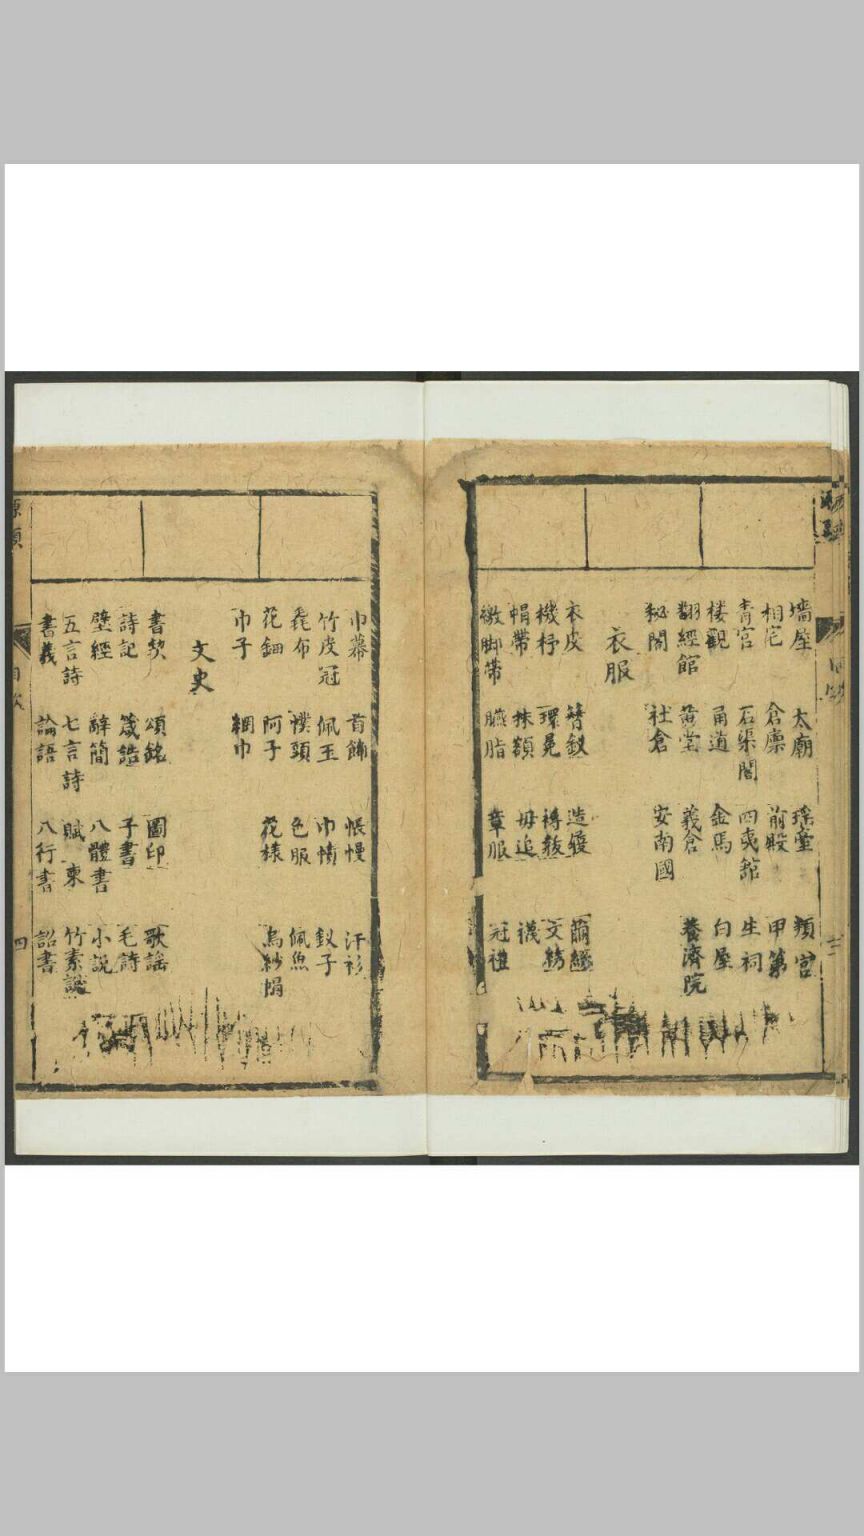 墻屋 太廟 瑤堂 頖宮
相宅 倉廩 前殿 甲第
青宮 石渠閣 四夷館 生祠
楼觀 甬道 金馬 白屋
翻經館 黄堂 義倉 養濟院
秘閣 社倉 安南國
衣服
衣皮 簪釵 造履
機杼 環冕
帽帶 抹額 毋追 襪
臙脂 章服 冠禮
巾幕 首飾 帳幔 汗衫
竹皮冠 佩玉 巾幘 釵子
毳布 幞頭 色服 佩魚
花鈿 阿子 花様 烏紗帽
巾子 網巾
文史
書契 頌銘 圖印 歌謡
詩記 箴誥 子書 毛詩
壁經 辭簡 八體書 小説
五言詩 七言詩 賦 竹素
書義 論語 八行書 詔書
目次
四